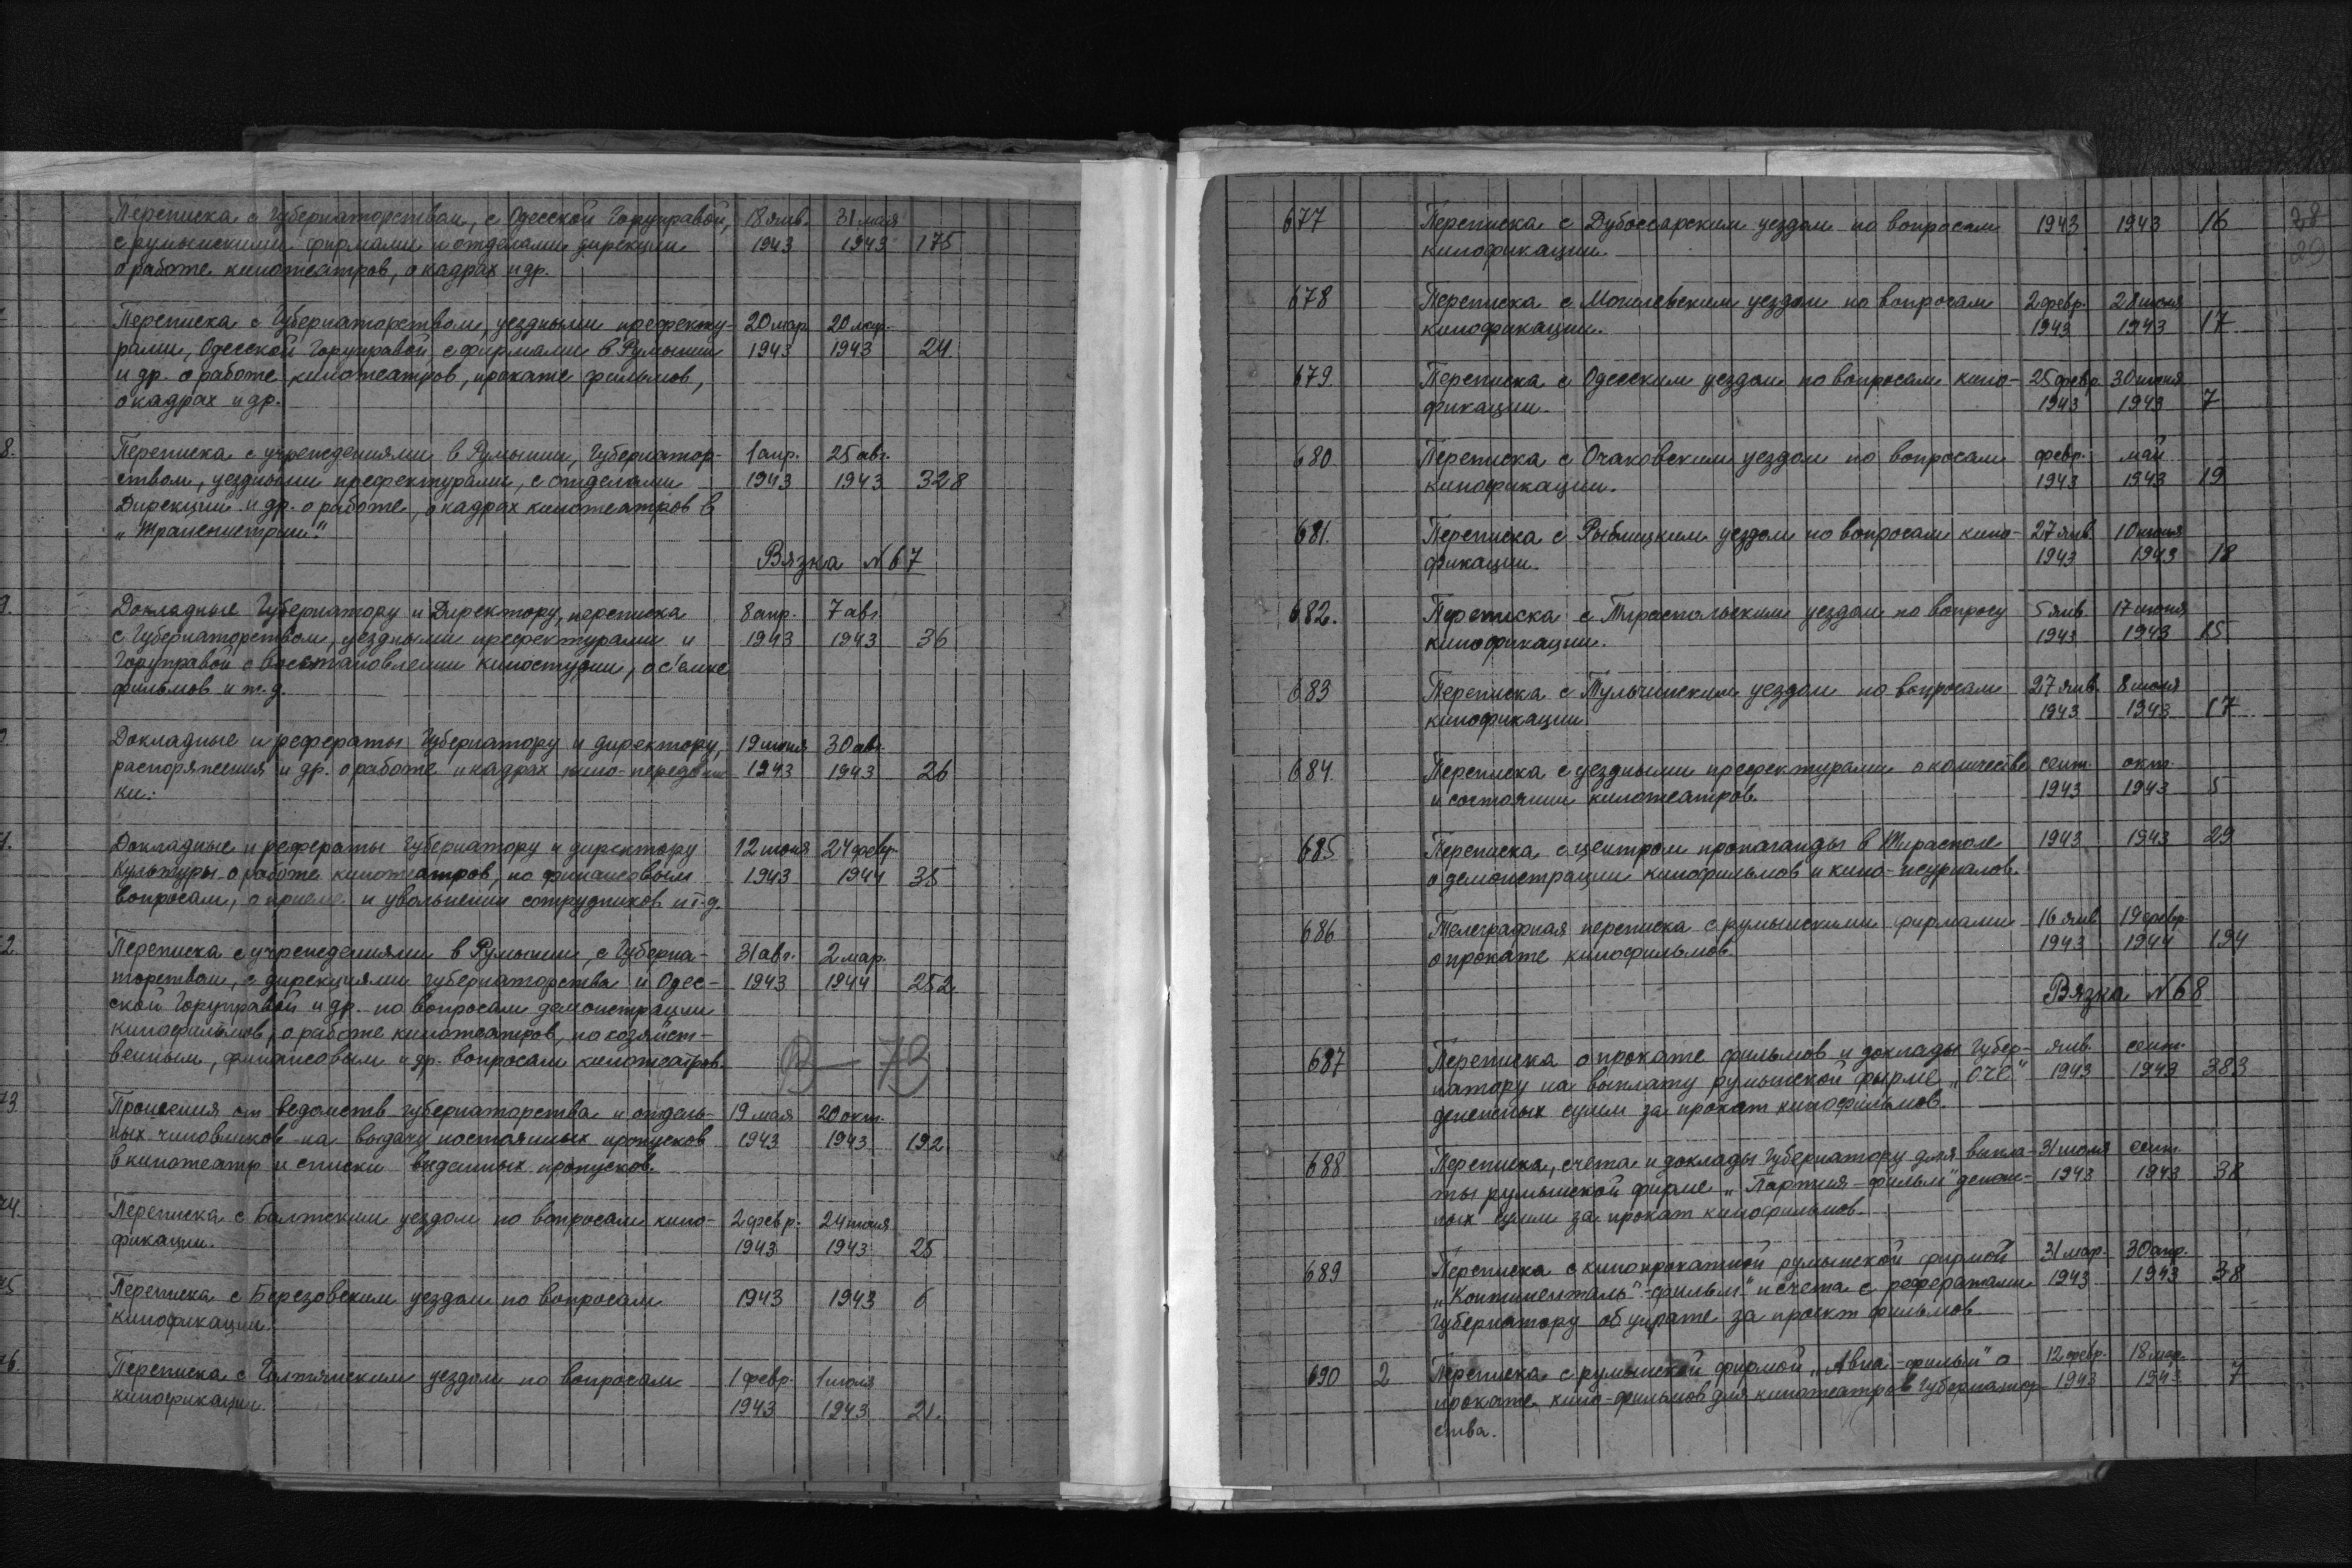 Переписка с Губернаторством, с Одесской Горуправой, 18 янв. 31 мая
с румынскими фирмами и отделами дирекции 1943 1943 175
о работе кинотеатров, о кадрах и др.
Переписка с Губернаторством, уездными префекту- 20 мар. 20 апр.
рами, Одесской Горуправой с фирмами в Румынии 1943 1943 24
и др. о работе кинотеатров, прокате фильмов,
о кадрах и др.
8. Переписка с учреждениями в Румынии, Губернатор- 1 апр. 25 авг.
ством, уездными префектурами, с отделами 1943 1943 328
Дирекции и др. о работе, о кадрах кинотеатров в
„Транснистрии".
Вязка N 67
9. Докладные Губернатору и Директору, переписка 8 апр. 7 авг.
с Губернаторством, уездными префектурами и 1943 1943 36
Горуправой о восстановлении киностудии, о с'емке
фильмов и т.д.
Докладные и рефераты Губернатору и директору, 19 июня 30 авг.
распоряжения и др. о работе и кадрах кино-передвиж 1943 1943 26
ки.
1. Докладные и рефераты Губернатору и директору 12 июня 24 февр.
Культуры о работе кинотеатров, по финансовым 1943 1944 35
вопросам, о приеме и увольнении сотрудников и т.д.
2. Переписка с учреждениями в Румынии, с Губерна- 31 авг. 2 мар.
торством, с дирекциями губернаторства и Одес- 1943 1944 252
ской Горуправой и др. по вопросам демонстрации
кинофильмов, о работе кинотеатров, по хозяйст-
венным, финансовым и др. вопросам кинотеатров.
73. Прошения от ведомств губернаторства и отдель- 19 мая 20 окт.
ных чиновников на выдачу постоянных пропусков 1943 1943 192
в кинотеатр и списки выданных пропусков.
74. Переписка с Балтским уездом по вопросам кино- 2 февр. 24 июня
фикации. 1943 1943 25
75. Переписка с Березовским уездом по вопросам 1943 1943 6
кинофикации.
76. Переписка с Голтянским уездом по вопросам 1 февр. 1 июля
кинофикации. 1943 1943 21.
28
29
677 Переписка с Дубоссарским уездом по вопросам 1943 1943 16
кинофикации.
678 Переписка с Могилевским уездом по вопросам 2 февр. 28 июня
кинофикации. 1943 1943 17
679. Переписка с Одесским уездом по вопросам кино- 25 февр. 30 июня
фикации. 1943 1943 7
680 Переписка с Очаковским уездом по вопросам февр. май
кинофикации. 1943 1943 19
681. Переписка с Рыбницким уездом по вопросам кино- 27 янв. 10 июня
фикации. 1943 1943 18
682. Переписка с Тираспольским уездом по вопросу 5 янв. 17 июня
кинофикации. 1943 1943 15
683 Переписка с Тульчинским уездом по вопросам 27 янв. 8 июня
кинофикации 1943 1943 17
684. Переписка с уездными префектурами о количестве сент. окт.
и состоянии кинотеатров. 1943 1943 5
685 Переписка с центром пропаганды в Тирасполе 1943 1943 29
о демонстрации кинофильмов и кино-журналов.
686 Телеграфная переписка с румынскими фирмами 16 янв. 19 февр.
о прокате кинофильмов. 1943 1944 194
Вязка N 68
687 Переписка о прокате фильмов и доклады Губер- янв. сент.
натору на выплату румынской фирме „ОЧЕ" 1943 1943 383
денежных сумм за прокат кинофильмов.
688 Переписка, счета и доклады Губернатору для выпла- 31 июля сент.
ты румынской фирме „Партия-фильм" денеж- 1943 1943 38
ных сумм за прокат кинофильмов.
689 Переписка с кинопрокатной румынской фирмой 31 мар. 30 апр.
„Континенталь"-фильм" и счета с рефератами 1943 1943 38
Губернатору об уплате за прокт фильмов
690 2 Переписка с румынской фирмой „Авиа-фильм" о 12 февр. 18 мар.
прокате кино-фильмов для кинотеатров Губернатор- 1943 1943 7
ства.